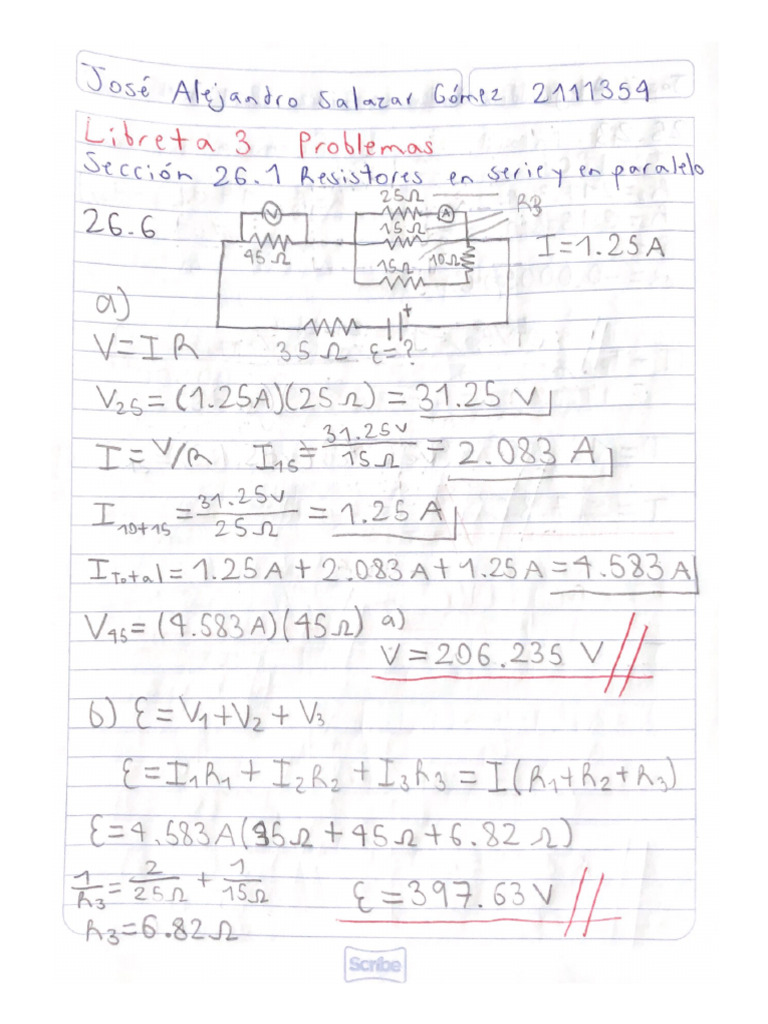 José Alejandro Salazar Gómez 2111354
Libreta 3 Problemas
Sección 26.1 Resistores en serie y en paralelo
26.6
V
45Ω
25Ω
A
15Ω
15Ω
10Ω
R3
I=1.25A
35Ω
+
ε=?
a)
V=IR
V25=(1.25A)(25Ω)=31.25 V
I=V/R I15=31.25V/15Ω=2.083 A
I10+15=31.25V/25Ω=1.25 A
ITotal=1.25A+2.083A+1.25A=4.583A
V45=(4.583A)(45Ω) a)
V=206.235 V
b) ε=V1+V2+V3
ε=I1R1+I2R2+I3R3=I(R1+R2+R3)
ε=4.583A(35Ω+45Ω+6.82Ω)
1/R3=2/25Ω+1/15Ω ε=397.63V
R3=6.82Ω
Scribe